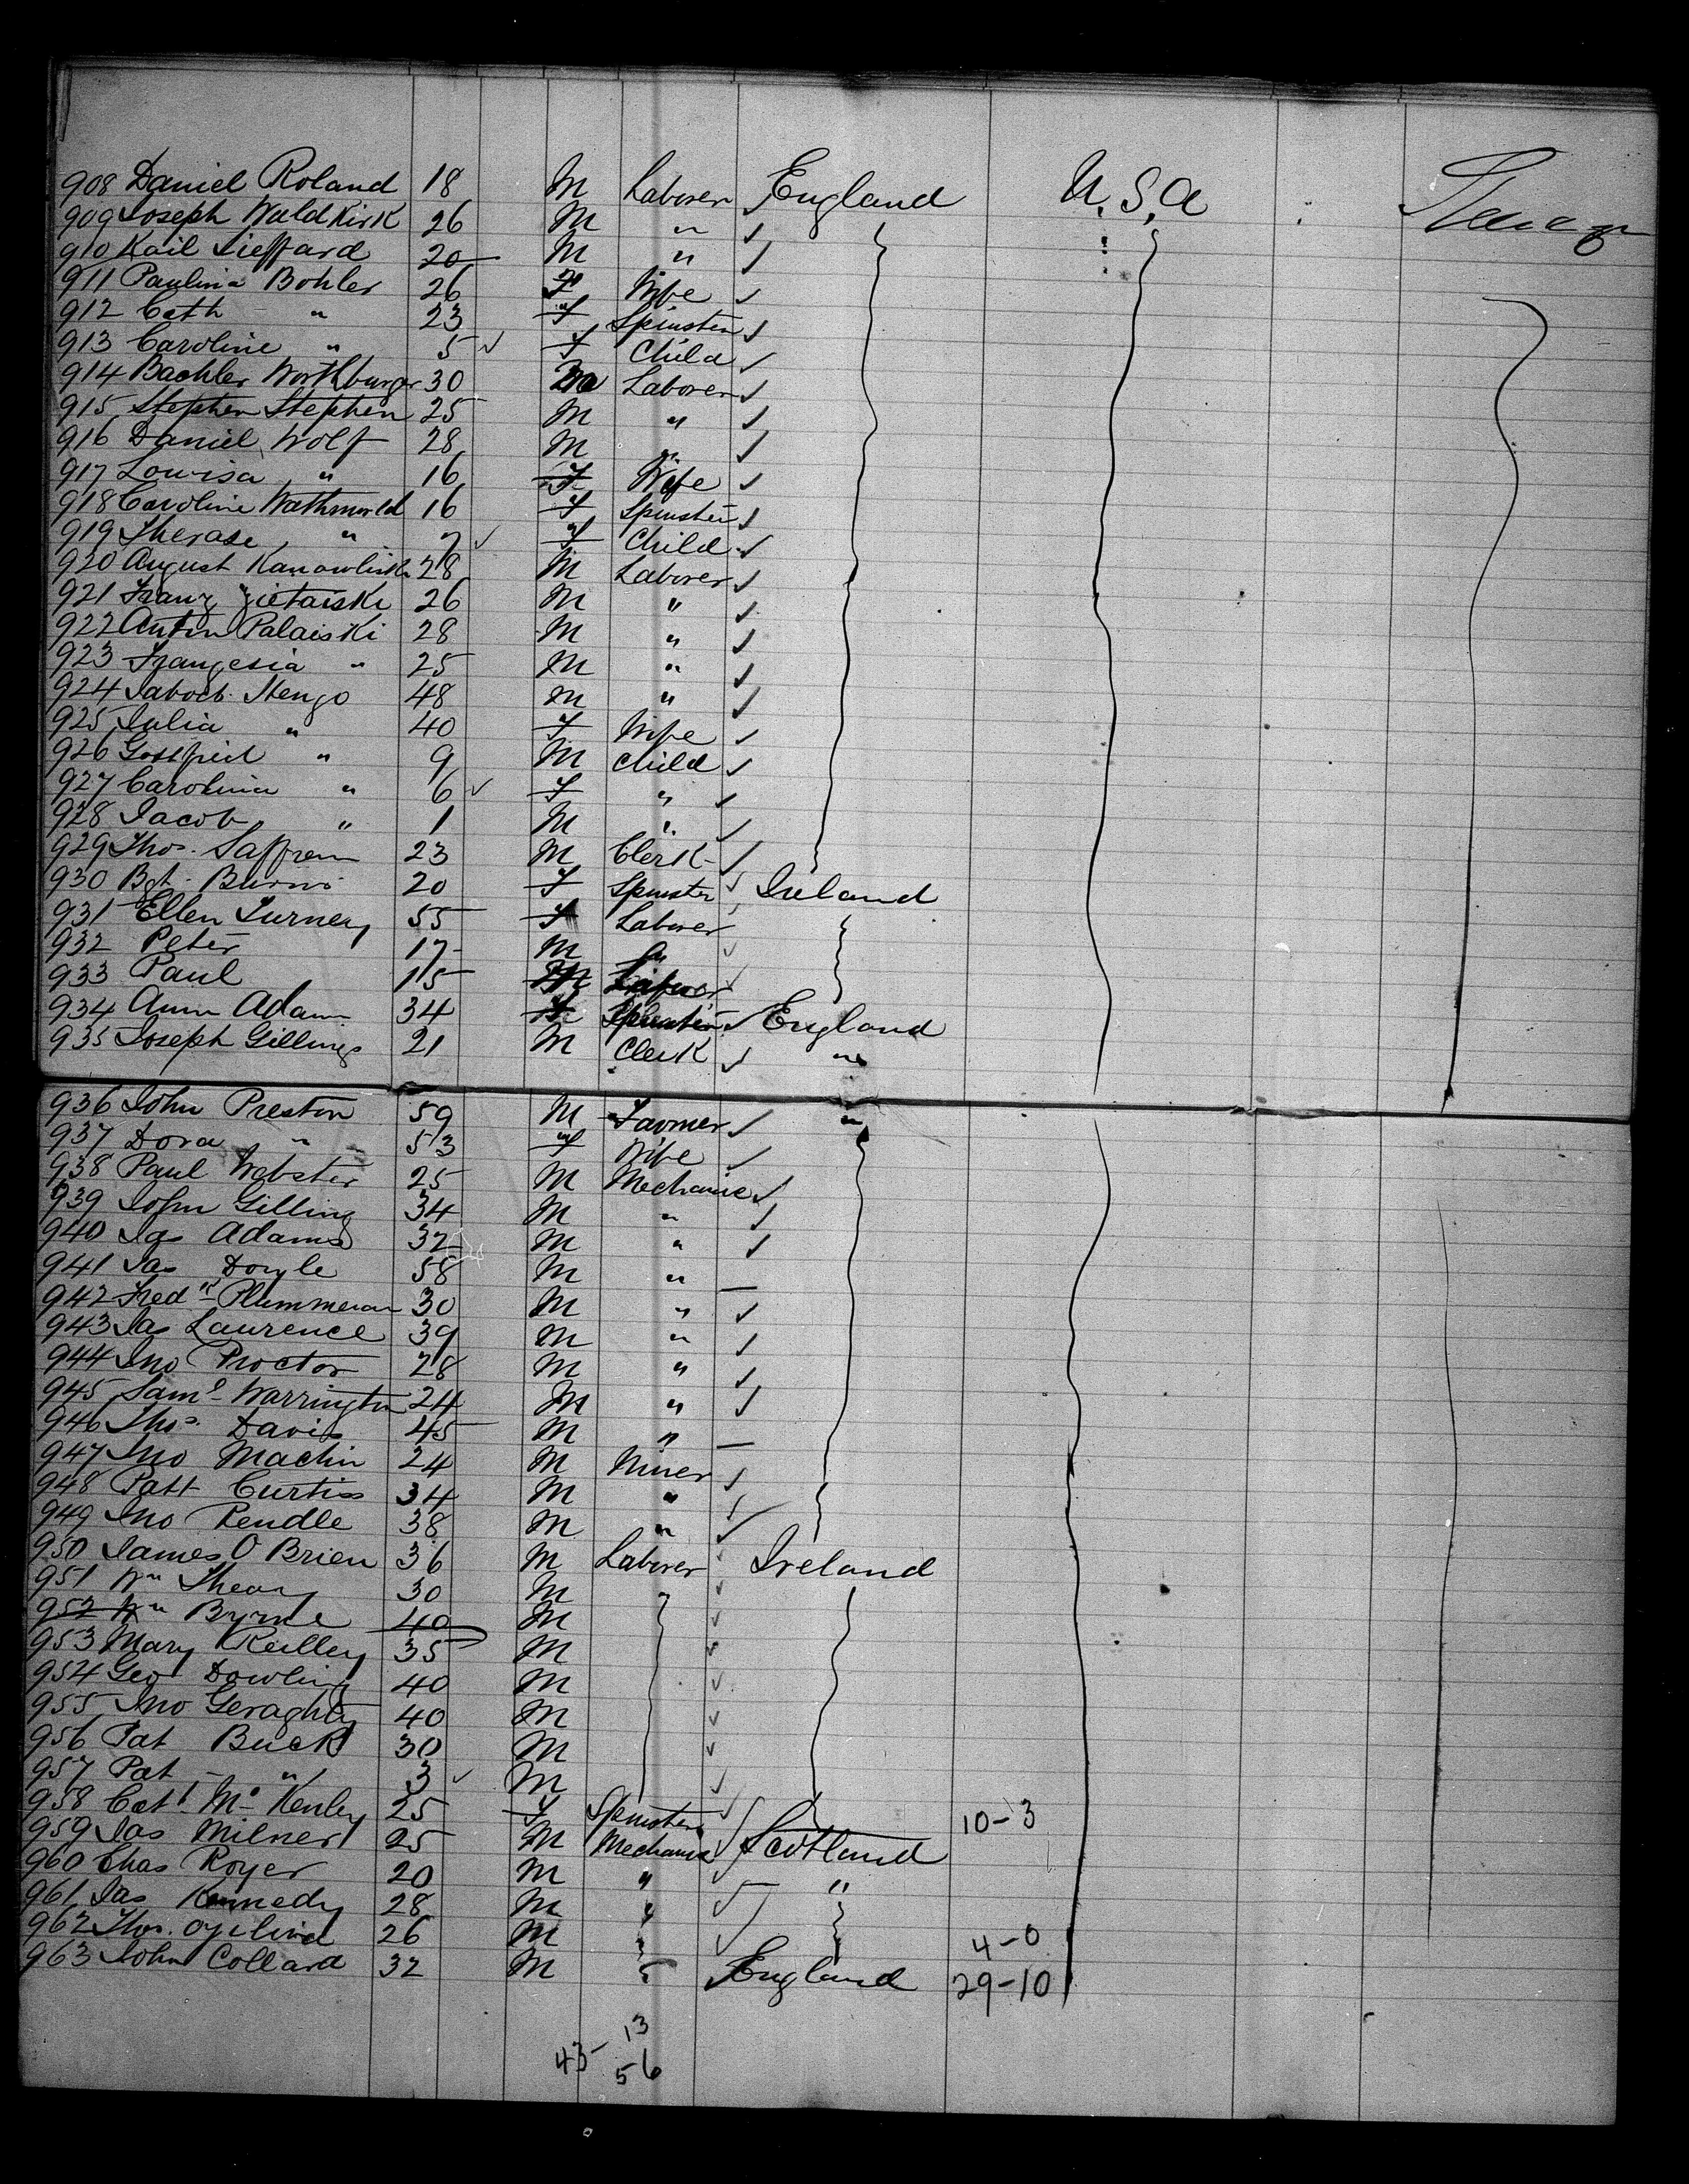 908 Daniel Roland 18 M Laborer England U.S.A
909 Joseph Waldkirk 26 M "
910 Kail Sieffard 20 M "
911 Paulina Bohler 26 F Wife
912 Cath " 23 F Spinster
913 Caroline " 5 F Child
914 Bachler Worthburger 30 M Laborer
915 Stephen Stephen 25 M "
916 Daniel Wolf 28 M "
917 Louisa " 16 F Wife
918 Caroline Wathmorld 16 F Spinster
919 Therase " 7 F Child
920 August 28 M Laborer
921 Franz Zietaiski 26 M "
922 Anton Palaiski 28 M "
923 " 25 M "
924 Stengo 48 M "
925 Julia " 40 F Wife
926 Gottfried " 9 M Child
927 Carolina " 6 F "
928 Jacob " 1 M "
929 Thos. Saffren 23 M Clerk
930 Bgt. Burns 20 F Spinster Ireland
931 Ellen Turney 55 F Laborer
932 Peter 17 M "
933 Paul 15 M Laborer
934 Ann Adam 34 F Spinster England
935 Joseph Gillings 21 M Clerk "
936 John Preston 59 M Farmer "
937 Dora " 53 F Wife
938 Paul Webster 25 M Mechanic
939 John Gilling 34 M "
940 Jas Adams 32 M "
941 Jas Doyle 58 M "
942 Fredk Plummeran 30 M "
943 Jas Laurence 39 M "
944 Jno Proctor 28 M "
945 Saml Warrington 24 M "
946 Thos. Davis 45 M "
947 Jno Machin 24 M Miner
948 Patt Curtiss 34 M "
949 Jno Rendle 38 M "
950 James O Brien 36 M Laborer Ireland
951 Wm Sheary 30 M
952 Wm Byrne 40 M
953 Mary Reilley 35 M
954 Geo Dowling 40 M
955 Jno Geraghty 40 M
956 Pat Buck 30 M
957 Pat " 3 M
958 Cath Mc Kenley 25 F Spinster 10-3
959 Jas Milner 25 M Mechanic Scotland
960 Chas Royer 20 M " "
961 Jas Kennedy 28 M "
962 Thos. Ogilvie 26 M " 4-0
963 John Collard 32 M " England 29-10
13
43
56